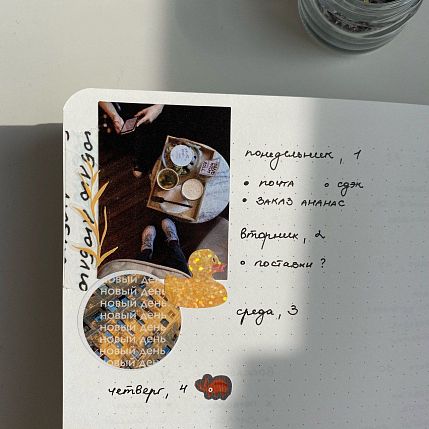 понедельник, 1
• почта • сдэк
• заказ ананас
вторник, 2
• поставки ?
среда, 3
четверг, 4
люблю люблю
новый день
новый день
новый день
новый день
новый день
новый день
новый день
новый день